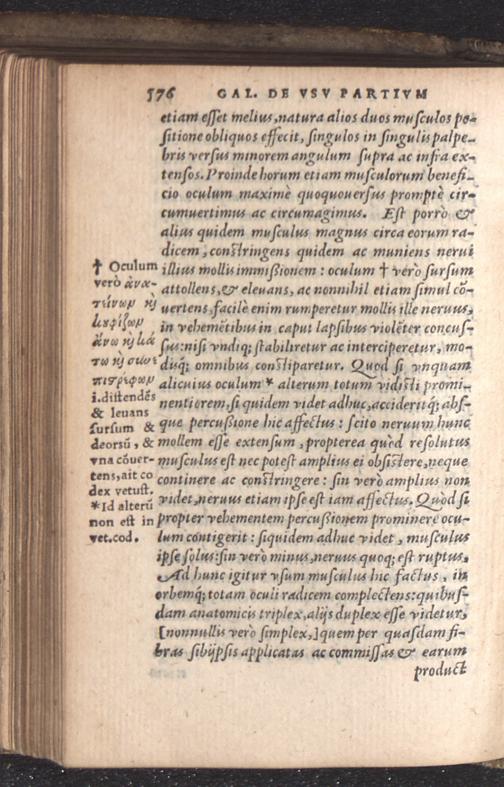 576 GAL. DE VSV PARTIVM
etiam esset melius, natura alios duos musculos po-
sitione obliquos effecit, singulos in singulis palpe-
bris versus minorem angulum supra ac infra ex-
tensos. Proinde horum etiam musculorum benefi-
cio oculum maximè quoquouersus promptè cir-
cumuertimus ac circumagimus. Est porrò &
alius quidem musculus magnus circa eorum ra-
dicem, constringens quidem ac muniens nerui
illius mollis immißionem : oculum † verò sursum
attollens, & eleuans, ac nonnihil etiam simul cõ-
uertens, facilè enim rumperetur mollis ille neruus,
in vehemẽtibus in caput lapsibus violẽter concus-
sus: nisi vndiq; stabiliretur ac interciperetur, mo-
dúq; omnibus constiparetur. Quod si vnquam
alicuius oculum * alterum totum vidisti promi-
nentiorem, si quidem videt adhuc, accideritq; abs-
que percußione hic affectus : scito neruum hunc
mollem esse extensum, propterea quòd resolutus
musculus est nec potest amplius ei obsistere, neque
continere ac constringere : sin verò amplius non
videt, neruus etiam ipse est iam affectus. Quod si
propter vehementem percußionem prominere ocu-
lum contigerit : siquidem adhuc videt, musculus
ipse solus: sin verò minus, neruus quoq; est ruptus.
Ad hunc igitur vsum musculus hic factus, in
orbemq; totam oculi radicem complectens: quibus-
dam anatomicis triplex, alijs duplex esse videtur,
[nonnullis verò simplex,] quem per quasdam fi-
bras sibijpsis applicatas ac commissas & earum
product
† Oculum
verò ἀνα-
τείνων κỳ
κουφίζων
ἄνω κỳ κά
τω κỳ συνε
πιστρέφων
i. distendẽs
& leuans
sursum &
deorsũ, &
vna cõuer-
tens, ait co
dex vetust.
* Id alterũ
non est in
vet. cod.